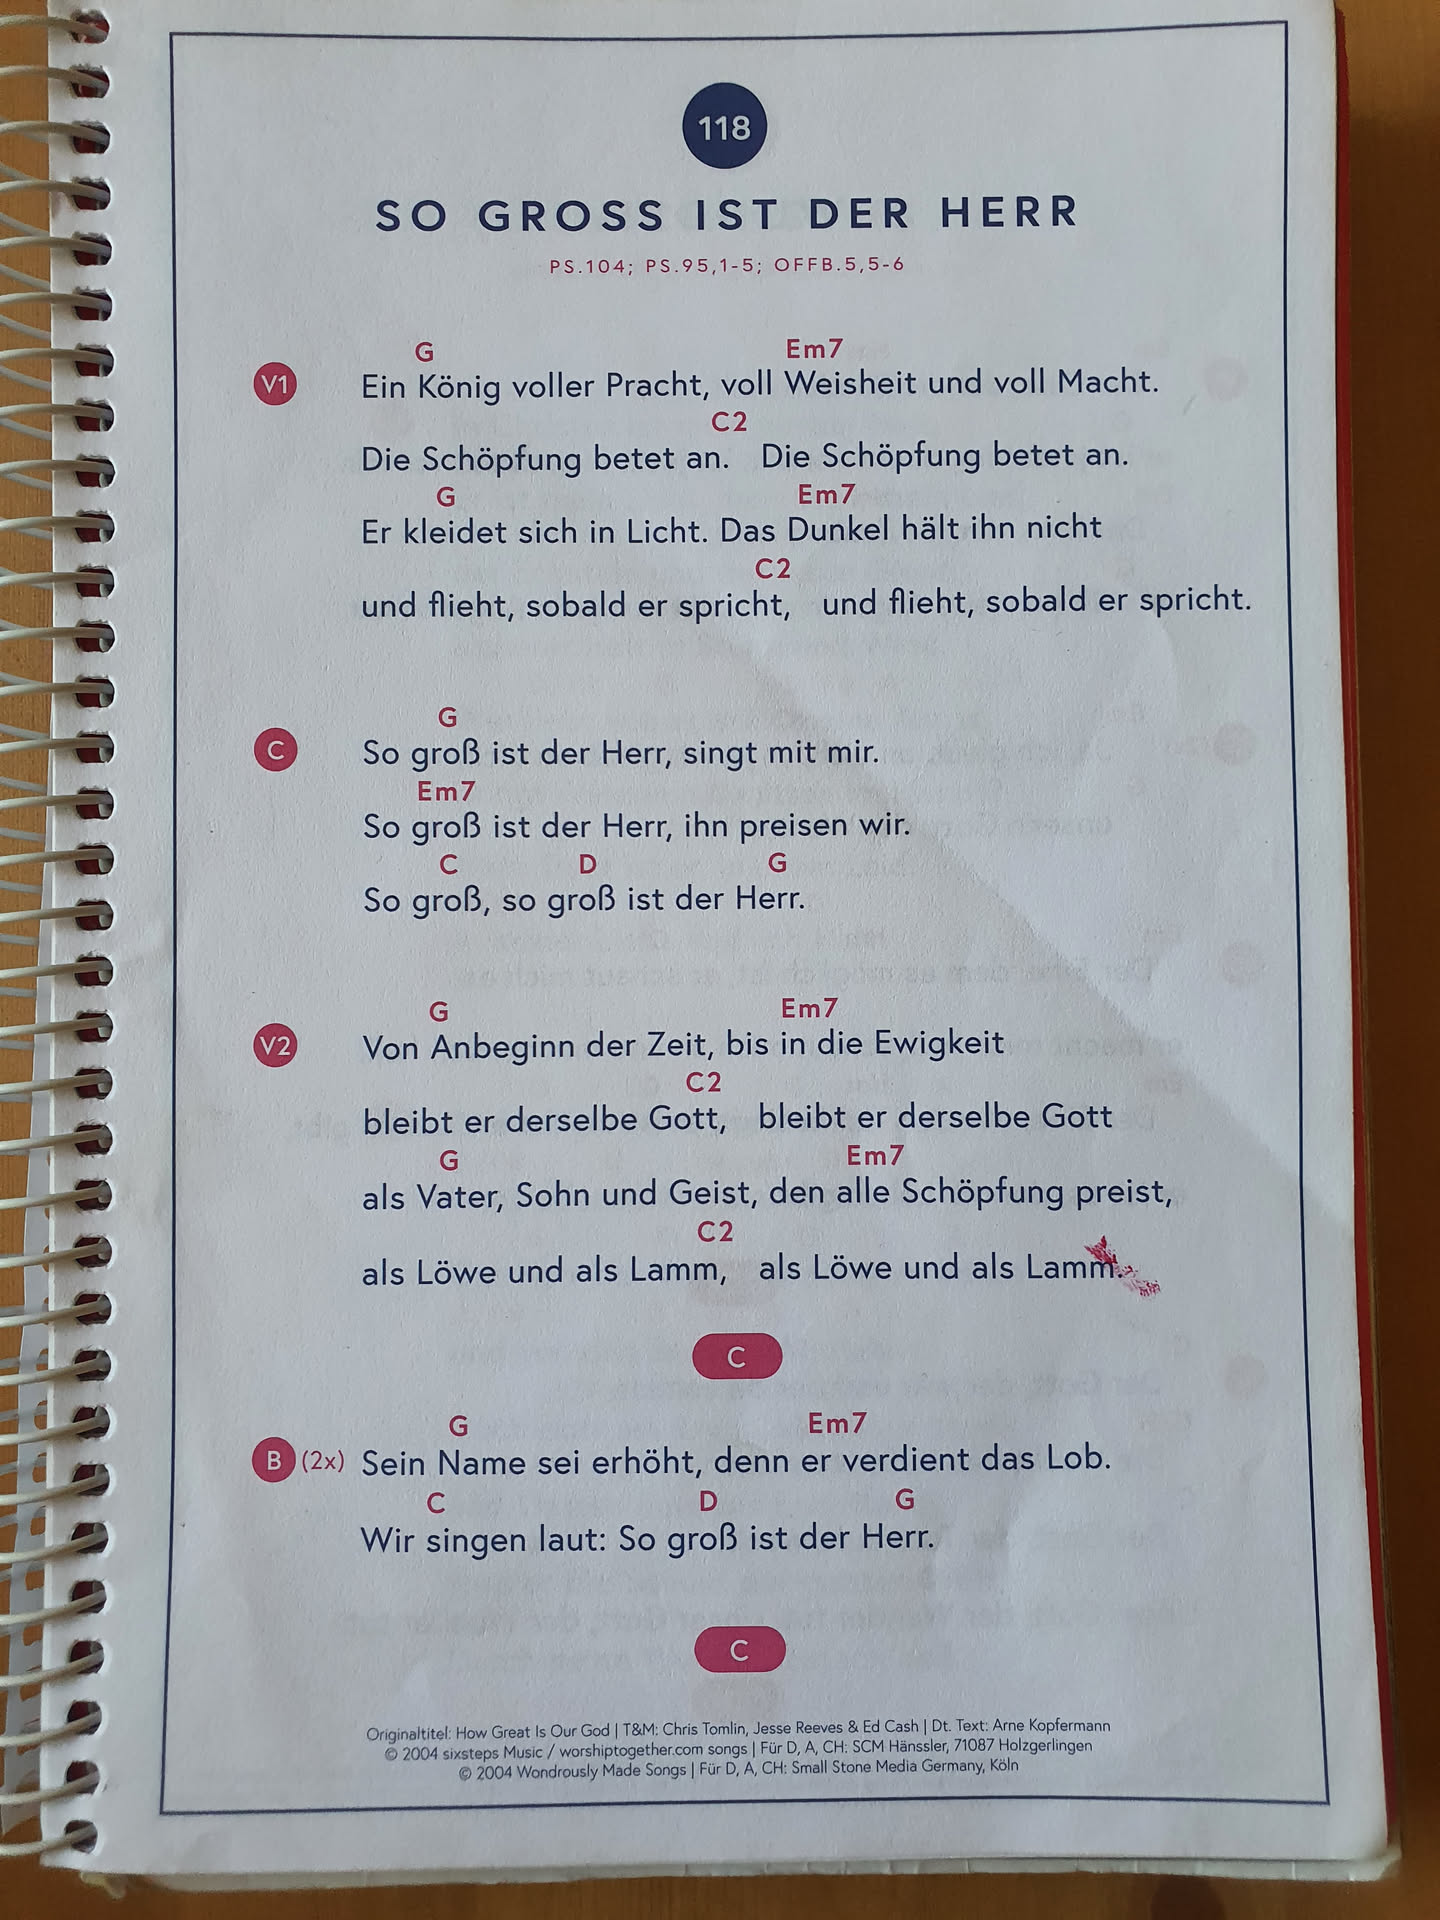 118
SO GROSS IST DER HERR
PS.104; PS.95,1-5; OFFB.5,5-6
G Em7
V1 Ein König voller Pracht, voll Weisheit und voll Macht.
C2
Die Schöpfung betet an. Die Schöpfung betet an.
G Em7
Er kleidet sich in Licht. Das Dunkel hält ihn nicht
C2
und flieht, sobald er spricht, und flieht, sobald er spricht.
G
C So groß ist der Herr, singt mit mir.
Em7
So groß ist der Herr, ihn preisen wir.
C D G
So groß, so groß ist der Herr.
G Em7
V2 Von Anbeginn der Zeit, bis in die Ewigkeit
C2
bleibt er derselbe Gott, bleibt er derselbe Gott
G Em7
als Vater, Sohn und Geist, den alle Schöpfung preist,
C2
als Löwe und als Lamm, als Löwe und als Lamm.
C
G Em7
B (2x) Sein Name sei erhöht, denn er verdient das Lob.
C D G
Wir singen laut: So groß ist der Herr.
C
Originaltitel: How Great Is Our God | T&M: Chris Tomlin, Jesse Reeves & Ed Cash | Dt. Text: Arne Kopfermann
© 2004 sixsteps Music / worshiptogether.com songs | Für D, A, CH: SCM Hänssler, 71087 Holzgerlingen
© 2004 Wondrously Made Songs | Für D, A, CH: Small Stone Media Germany, Köln